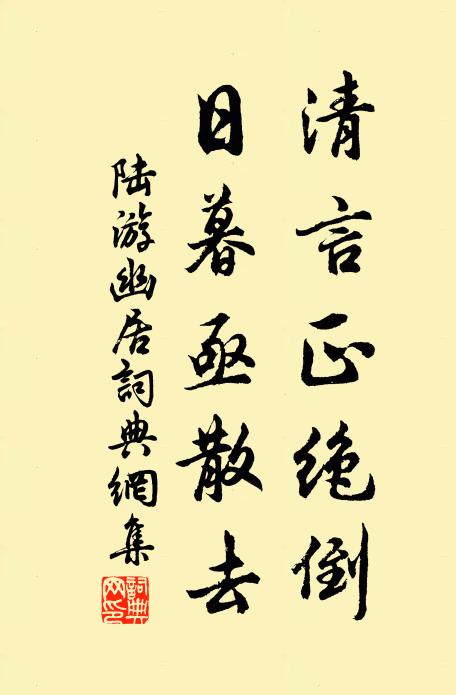 清言正絶倒
日暮亟散去
陸游幽居詞典網集
詞典网印